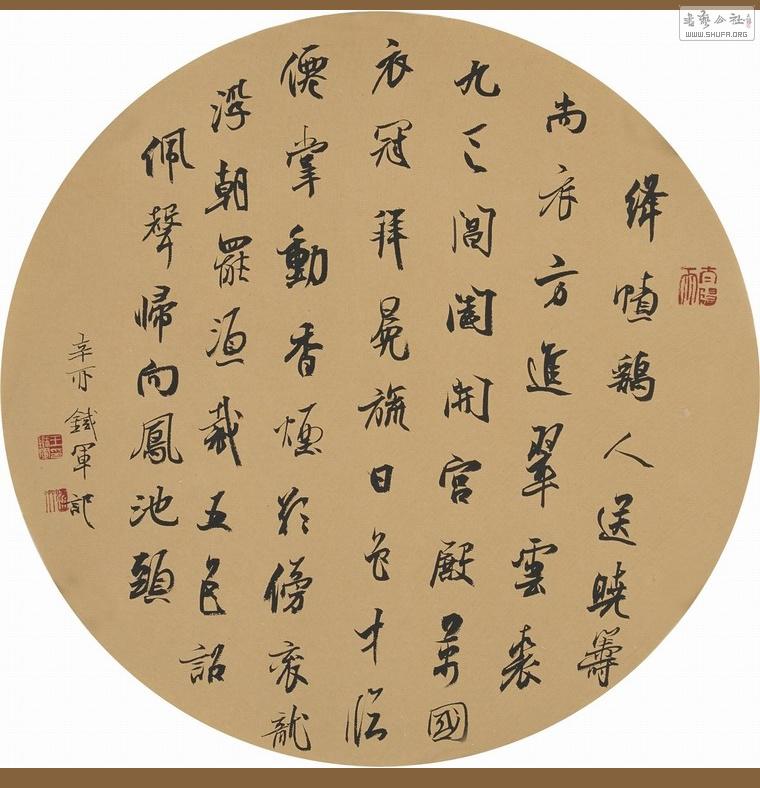 書藝公社
WWW.SHUFA.ORG
絳幘鷄人送曉籌
尚衣方進翠雲裘
九天閶闔開宮殿萬國
衣冠拜冕旒日色才臨
僊掌動香煙欲傍袞龍
浮朝罷須裁五色詔
佩聲歸向鳳池頭
辛卯鐵軍記